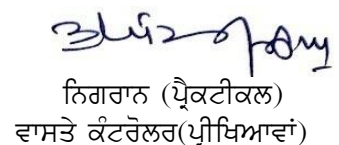 ਨਿਗਰਾਨ (ਪ੍ਰੈਕਟੀਕਲ)
ਵਾਸਤੇ ਕੰਟਰੋਲਰ(ਪ੍ਰੀਖਿਆਵਾਂ)